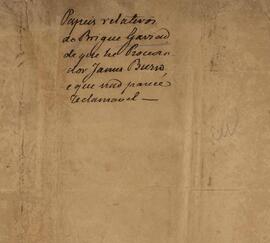 Papeis relativos
do Brigue
de que he Procura
dor James
e que não parece
reclamavel —